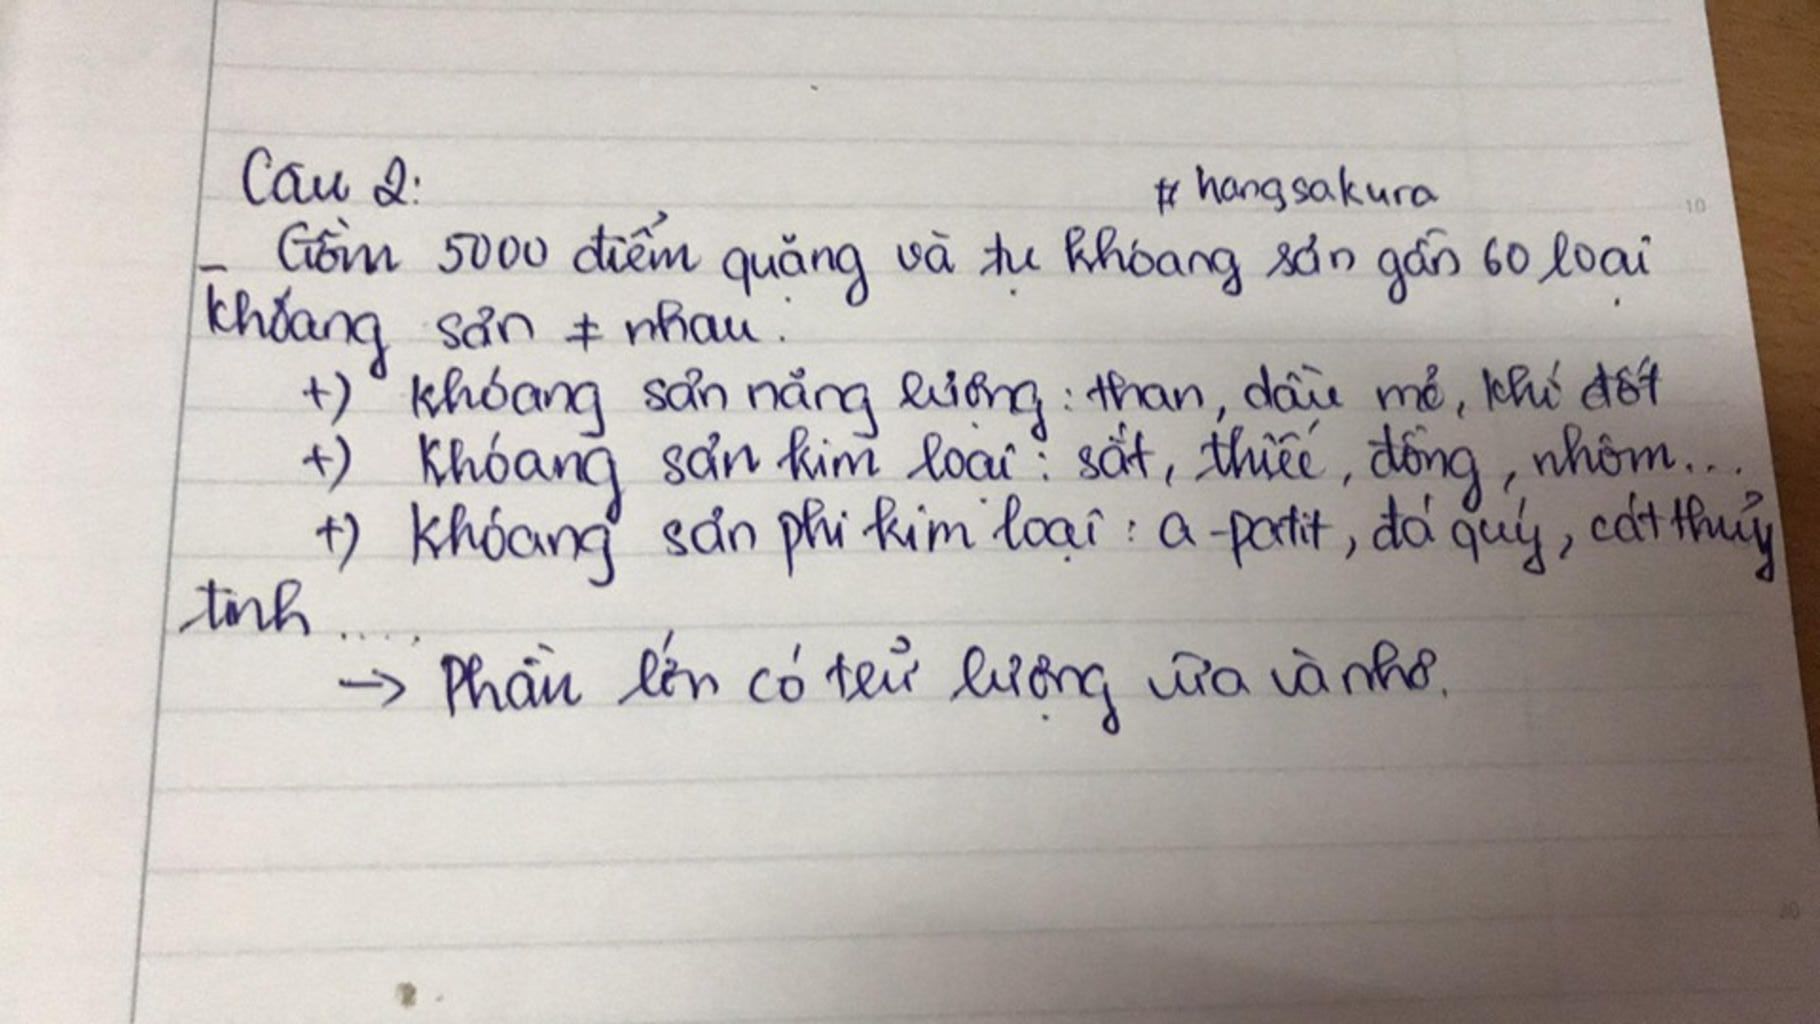 Câu 2:
# hangsakura
- Gồm 5000 điểm quặng và tụ khoáng sản gần 60 loại
khoáng sản ≠ nhau.
+) Khoáng sản năng lượng: than, dầu mỏ, khí đốt
+) Khoáng sản kim loại: sắt, thiếc, đồng, nhôm...
+) Khoáng sản phi kim loại: a-patit, đá quý, cát thủy
tinh.....
→ Phần lớn có trữ lượng vừa và nhỏ.
10
20